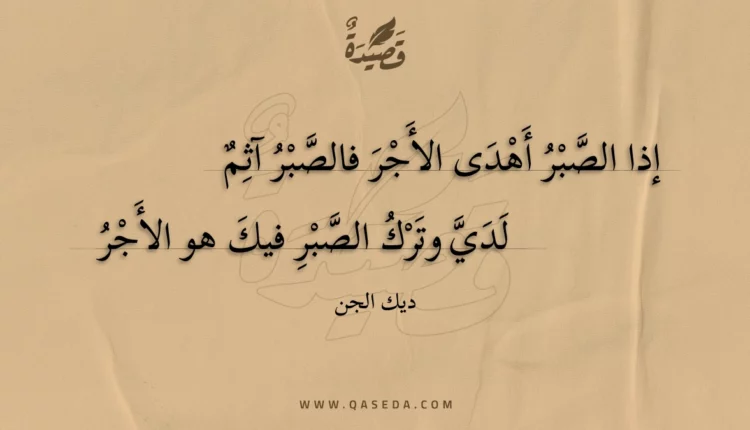 قَصِيْدَةٌ
إذا الصَّبْرُ أَهْدَى الأَجْرَ فالصَّبْرُ آثِمٌ
لَدَيَّ وتَرْكُ الصَّبْرِ فيكَ هو الأَجْرُ
ديك الجن
WWW.QASEDA.COM